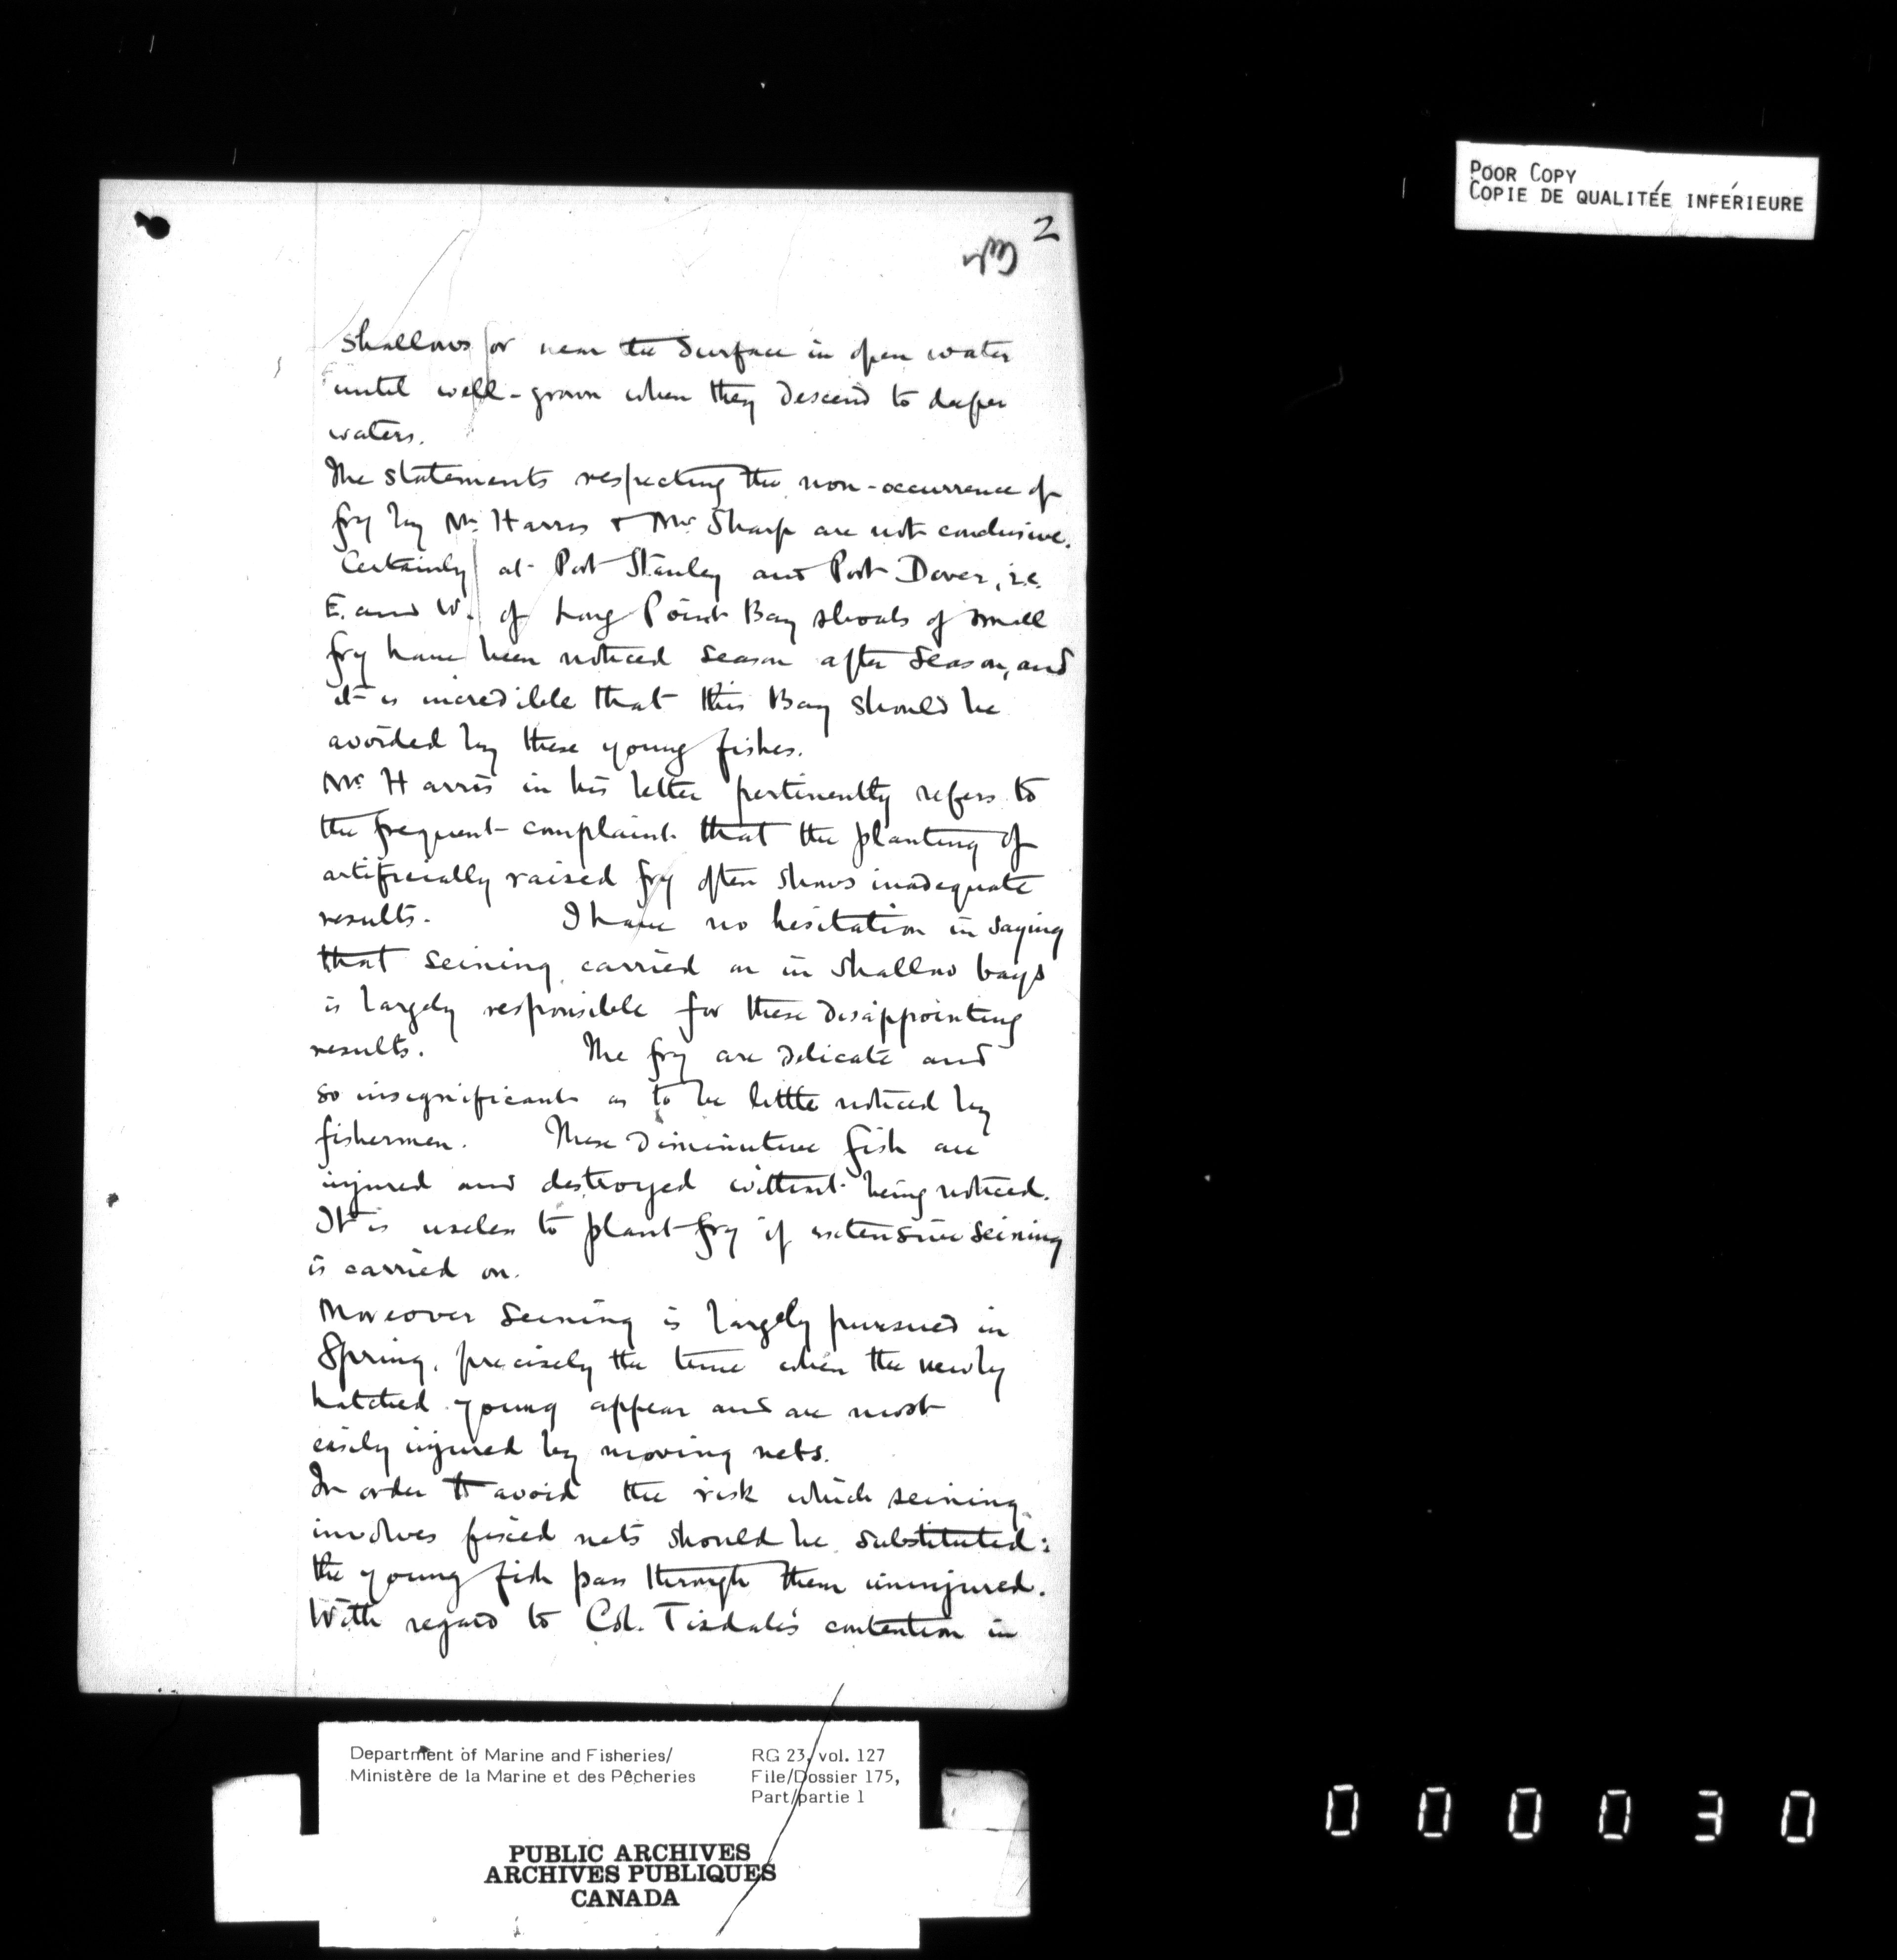 POOR COPY
COPIE DE QUALITÉE INFÉRIEURE
2
shallows or near the surface in open water
until well-grown when they descend to deeper
waters.
The statements respecting the non-occurrence of
fry by Mr. Harris & Mr. Sharp are not conclusive.
Certainly at Port Stanley and Port Dover, i.e.
E. and W. of Long Point Bay shoals of small
fry have been noticed season after season, and
it is incredible that this Bay should be
avoided by these young fishes.
Mr. Harris in his letter pertinently refers to
the frequent complaint that the planting of
artificially raised fry often shows inadequate
results. I have no hesitation in saying
that seining carried on in shallow bays
is largely responsible for these disappointing
results. The fry are delicate and
so insignificant as to be little noticed by
fishermen. These diminutive fish are
injured and destroyed without being noticed.
It is useless to plant fry if extensive seining
is carried on.
Moreover seining is largely pursued in
Spring, precisely the time when the newly
hatched young appear and are most
easily injured by moving nets.
In order to avoid the risk which seining
involves fixed nets should be substituted:
the young fish pass through them uninjured.
With regard to Col. Tisdale's contention in
Department of Marine and Fisheries/
Ministère de la Marine et des Pêcheries
RG 23, vol. 127
File/Dossier 175,
Part/partie 1
PUBLIC ARCHIVES
ARCHIVES PUBLIQUES
CANADA
000030